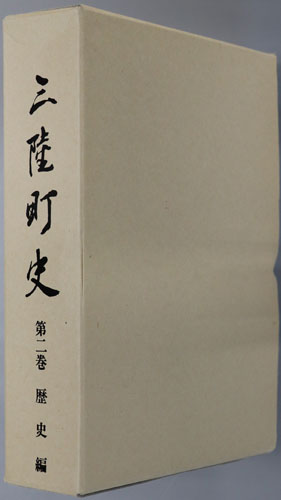 三陸町史
第二巻 歴史編